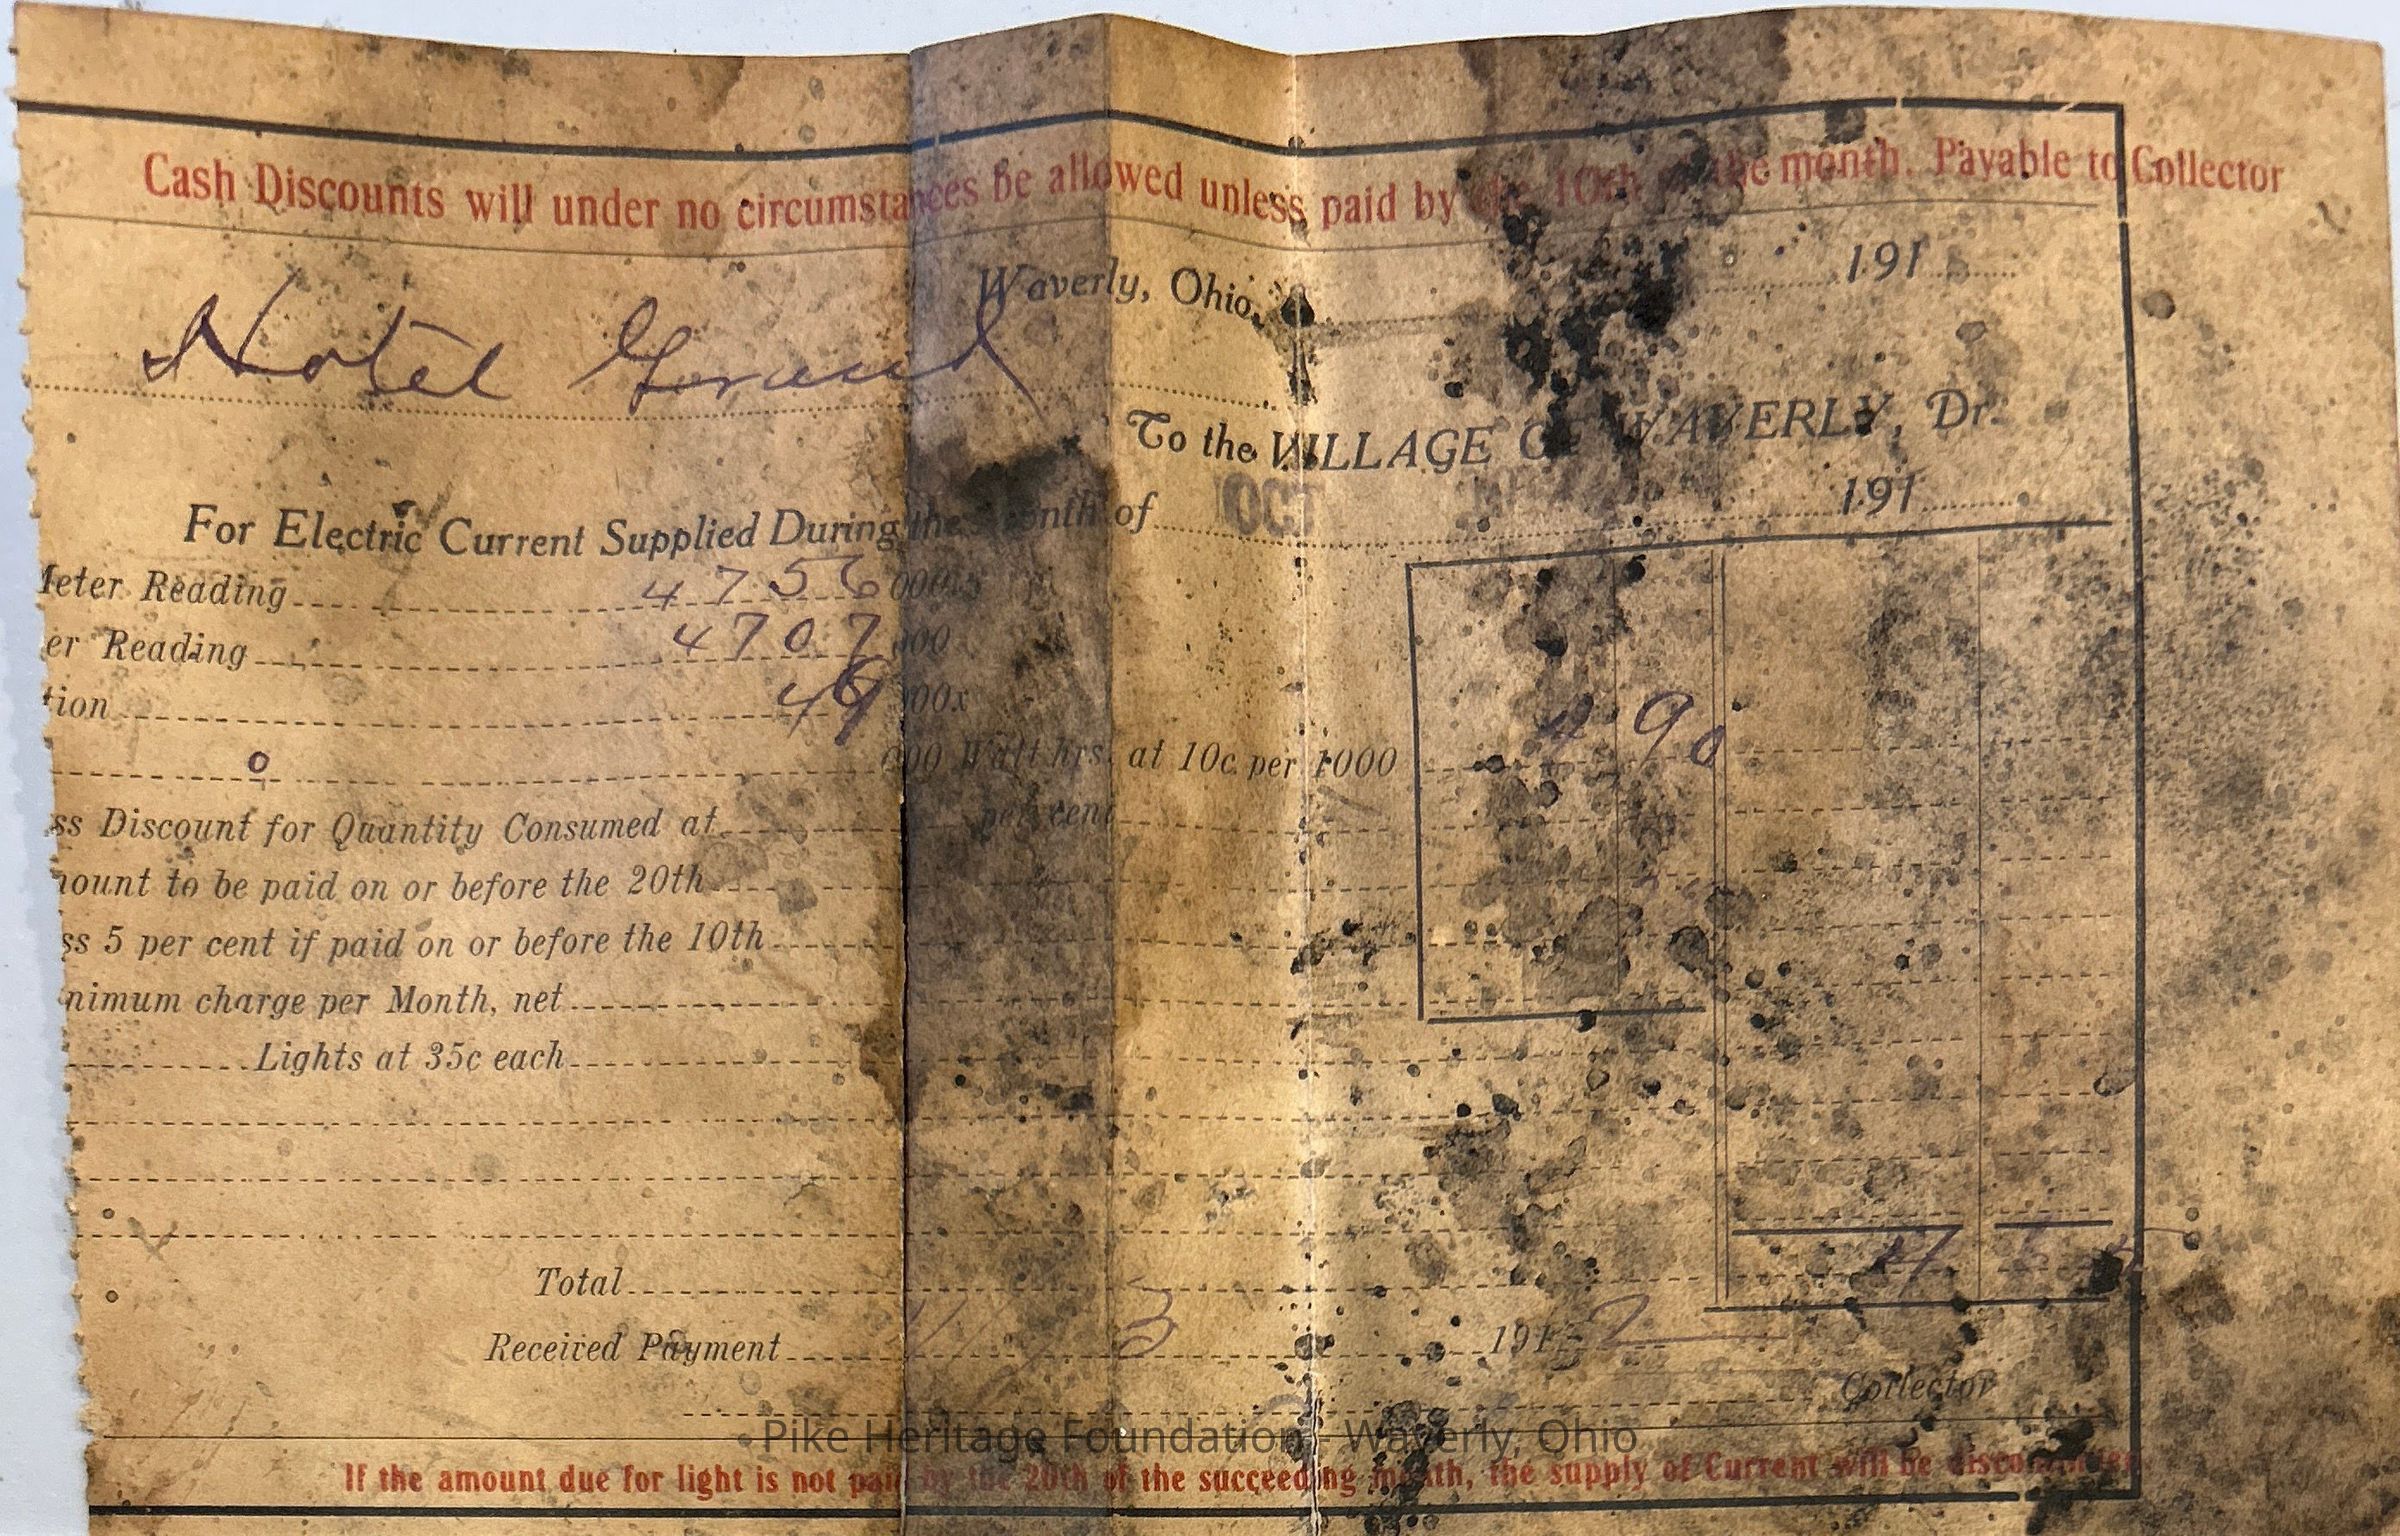 Cash Discounts will under no circumstances be allowed unless paid by the 10th of the month. Payable to Collector
Waverly, Ohio, 191
Hotel Grand
To the VILLAGE OF WAVERLY, Dr.
For Electric Current Supplied During the Month of OCT 191
Meter Reading 4756 000
er Reading 4707 000
tion 49 000
0 000 Watt hrs. at 10c per 1000 4 90
ss Discount for Quantity Consumed at per cent
mount to be paid on or before the 20th
ss 5 per cent if paid on or before the 10th
nimum charge per Month, net
Lights at 35c each
Total 4
Received Payment 11/3 191 2
Collector
Pike Heritage Foundation - Waverly, Ohio
If the amount due for light is not paid by the 20th of the succeeding month, the supply of Current will be